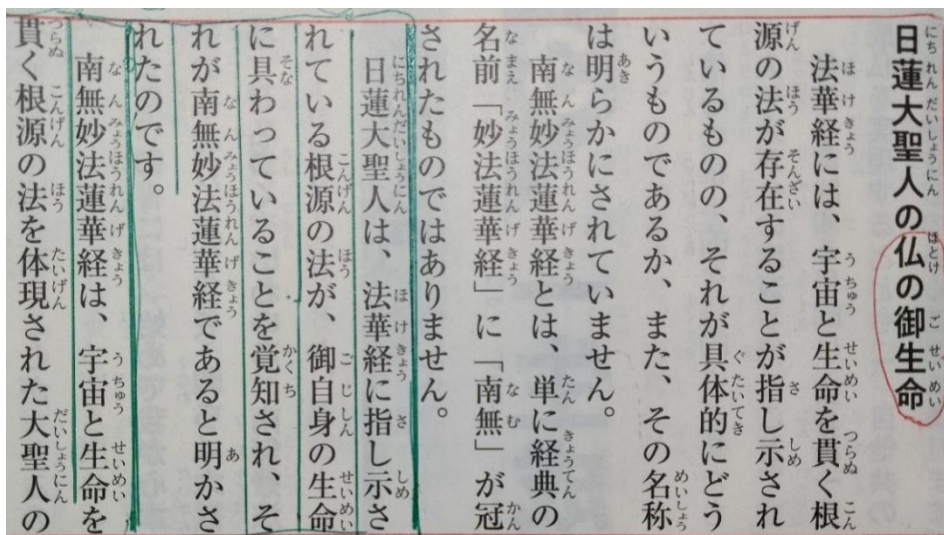 日蓮大聖人の仏の御生命
法華経には、宇宙と生命を貫く根
源の法が存在することが指し示され
ているものの、それが具体的にどう
いうものであるか、また、その名称
は明らかにされていません。
南無妙法蓮華経とは、単に経典の
名前「妙法蓮華経」に「南無」が冠
されたものではありません。
日蓮大聖人は、法華経に指し示さ
れている根源の法が、御自身の生命
に具わっていることを覚知され、そ
れが南無妙法蓮華経であると明かさ
れたのです。
南無妙法蓮華経は、宇宙と生命を
貫く根源の法を体現された大聖人の